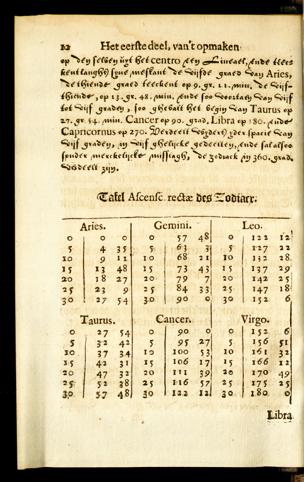 22 Het eerste deel, van't opmaken
op den selven uyt het centro een Lineael, ende teers
kentlanghs syne meskant de vijfde graed van Aries,
de thiende graed teeckent op 9. gr. 11. min. de vijf-
thiende, op 13. gr. 48. min. ende soo voortaen van vijf
tot vijf graden, soo ghevalt het begin van Taurus op
27. gr. 54. min. Cancer op 90. grad, Libra op 180. ende
Capricornus op 270. Verdeelt yder spacie van
vijf graden, in vijf ghelijcke gedeelten, ende sal alsoo
sonder merckelijcke de zodiack in 360. grad.
verdeelt zijn.
Tafel Ascensc. rectæ des Zodiacx.
Aries. Gemini. Leo.
0 0 0 0 57 48 0 122 12
5 4 35 5 63 3 5 127 22
10 9 11 10 68 21 10 132 28
15 13 48 15 73 43 15 137 29
20 18 27 20 79 7 20 142 25
25 23 9 25 84 33 25 147 18
30 27 54 30 90 0 30 152 6
Taurus. Cancer. Virgo.
0 27 54 0 90 0 0 152 6
5 32 42 5 95 27 5 156 51
10 37 34 10 100 53 10 161 32
15 42 31 15 106 17 15 166 12
20 47 32 20 111 39 20 170 49
25 52 38 25 116 57 25 175 25
30 57 48 30 122 12 30 180 0
Libra